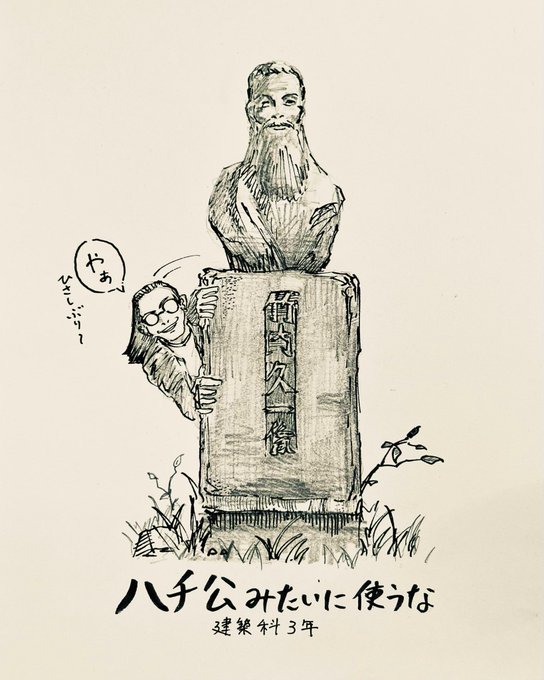 やぁ
ひさしぶり〜
竹内久一像
ハチ公みたいに使うな
建築科3年